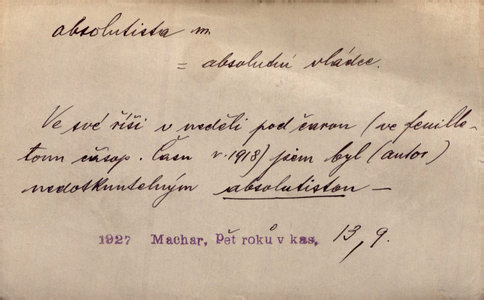 absolutista m.
= absolutní vládce.
Ve své říši v neděli pod čarou (ve feuille-
tonu časop. Času v. 1918) jsem byl (autor)
nedotknutelným absolutistou —
1927 Machar, Pět roků v kas, 13, 9.